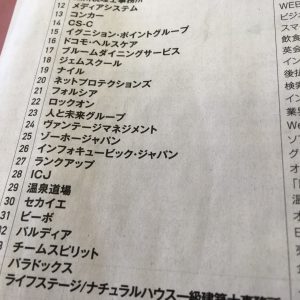 12 メディアシステム
13 コンカー
14 CS-C
15 イグニション・ポイントグループ
16 ドコモ・ヘルスケア
17 ブルームダイニングサービス
18 ジェムスクール
19 ナイル
20 ネットプロテクションズ
21 フォルシア
22 ロックオン
23 人と未来グループ
24 ヴァンテージマネジメント
25 ゾーホージャパン
26 インフォキュービック・ジャパン
27 ランクアップ
28 ICJ
29 温泉道場
30 セカイエ
31 ピーポ
32 バルディア
チームスピリット
パラドックス
ライフステージ/ナチュラルハウス一級建築士事務所
WEB
ビジ
スマ
飲食
英会
後払
検索
イン
業界
We
ソ
グ
オ
「
温
オ